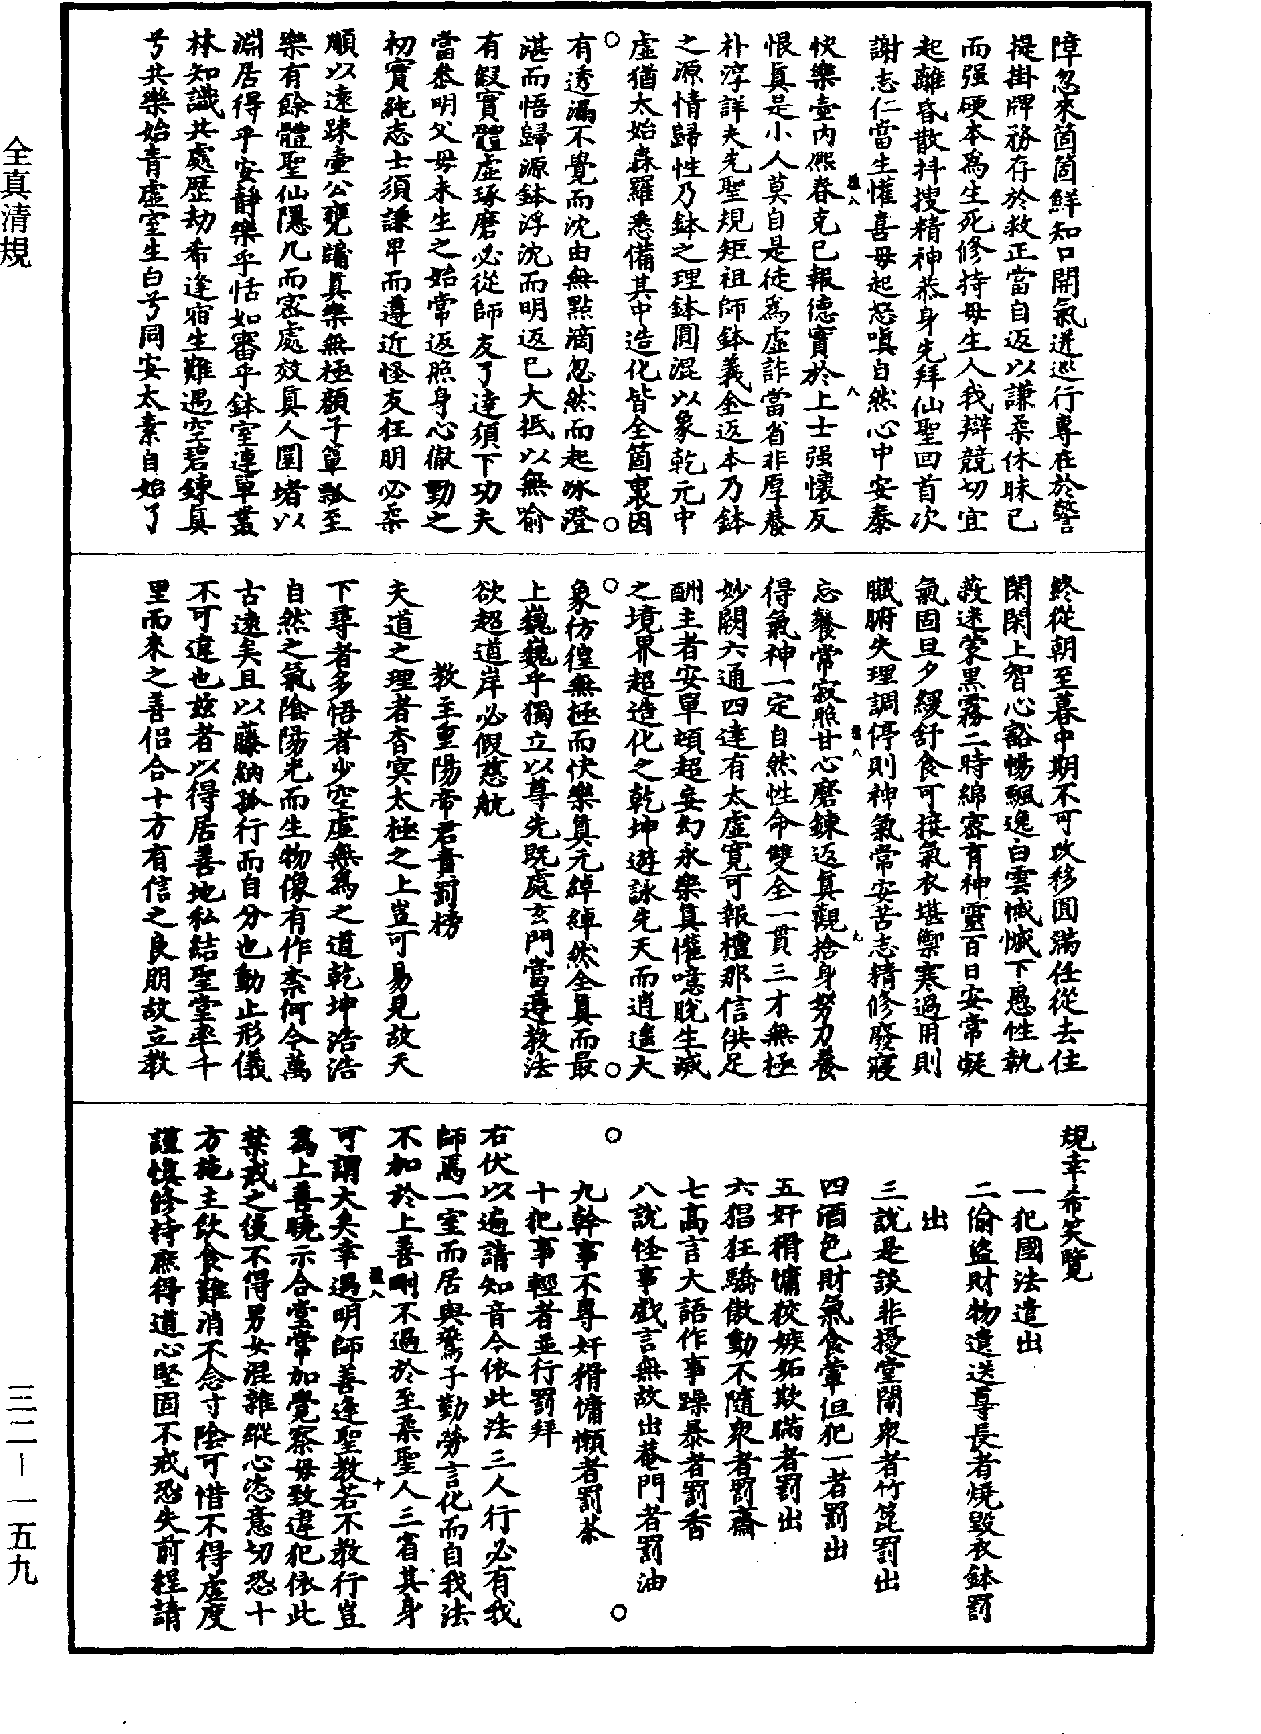 障忽來箇箇鮮知口開氣迸巡行專在於警
提掛牌務存於救正當自返以謙柔休昧已
而强硬本爲生死修持毋生人我辯競切宜
起離昏散抖搜精神恭身先拜仙聖回首次
謝志仁當生懽喜毋起怒嗔自然心中安泰
快樂壺內熙春克已報德實於上士强懷反
恨眞是小人莫自是徒爲虛詐當省非厚養
朴淳詳夫先聖規矩祖師鉢義全返本乃鉢
之源情歸性乃鉢之理鉢圓混以象乾元中
虛猶太始森羅悉備其中造化皆全箇裏因
有透漏不覺而沈由無點滴忽然而起冰澄
湛而悟歸源鉢浮沈而明返已大抵以無喻
有假實體虛琢磨必從師友了達須下功夫
當叅明父母未生之始常返照身心徹動之
初實純志士須謙卑而遵近怪友狂朋必柔
順以遠踈壺公甕牖眞樂無極顏子簞瓢至
樂有餘體聖仙隱几而密處效眞人圜堵以
淵居得乎安靜樂乎恬如審乎鉢室連單叢
林知識共處歷劫希逢宿生難遇空碧鍊眞
兮共樂始青虛室生白兮同安太素自始了
終從朝至暮中期不可改移圓滿任從去住
閑閑上智心豁暢飄逸白雲慽慽下愚性執
蔽迷蒙黑霧二時綿密育神靈百日安常凝
氣固旦夕緩舒食可接氣衣堪禦寒過用則
臟腑失理調停則神氣常安苦志精修廢寢
忘餐常寂照甘心磨鍊返眞觀捨身努力養
得氣神一定自然性命雙全一貫三才無極
妙關六通四達有太虛寬可報檀那信供足
酬主者安單頓超妄幻永樂眞懽噫脫生滅
之境界超造化之乾坤遊詠先天而逍遙大
象仿徨無極而快樂眞元綽綽然全眞而最
上巍巍乎獨立以尊先既處玄門當遵教法
欲超道岸必假慈航
教主重陽帝君責罰榜
夫道之理者杳冥太極之上豈可易見故天
下尋者多悟者少空虛無爲之道乾坤浩浩
自然之氣陰陽光而生物像有作柰何今萬
古遠矣且以藤納孤行而自分也動止形儀
不可違也兹者以得居善地私結聖堂率千
里而來之善侶合十方有信之良朋故立教
規幸希笑覽
一犯國法遣出
二偷盜財物遺送尊長者燒毀衣鉢罰
出
三說是談非擾堂鬧衆者竹箆罰出
四酒色財氣食葷但犯一者罰出
五奸猾慵狡嫉妬欺瞞者罰出
六猖狂驕傲動不隨衆者罰齋
七高言大語作事躁暴者罰香
八說怪事戲言無故出菴門者罰油
九幹事不專奸猾慵懶者罰茶
十犯事輕者並行罰拜
右伏以遍請知音今依此法三人行必有我
師焉一室而居與鴛子勤勞言化而自我法
不加於上善剛不過於至柔聖人三省其身
可謂大矣幸遇明師善逢聖教若不教行豈
爲上善曉示合堂常加覺察毋致違犯依此
禁戒之使不得男女混雜縱心恣意切恐十
方施主飲食難消不念寸陰可惜不得虛度
謹慎修持庶得道心堅固不戒恐失前程請
全真清規
三二-一五九